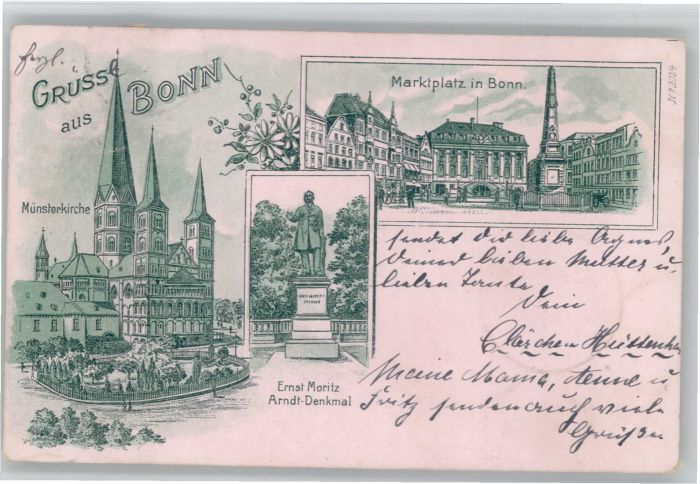 herzl.
GRÜSSE
aus BONN
Marktplatz in Bonn.
Münsterkirche
ERNST MORITZ
Ernst Moritz
Arndt-Denkmal
sendet dir liebe Agnes,
deiner lieben Mutter u.
lieben Tante
Dein
Clärchen
Meine Mama, Änne u.
Fritz senden auch viele
Grüße